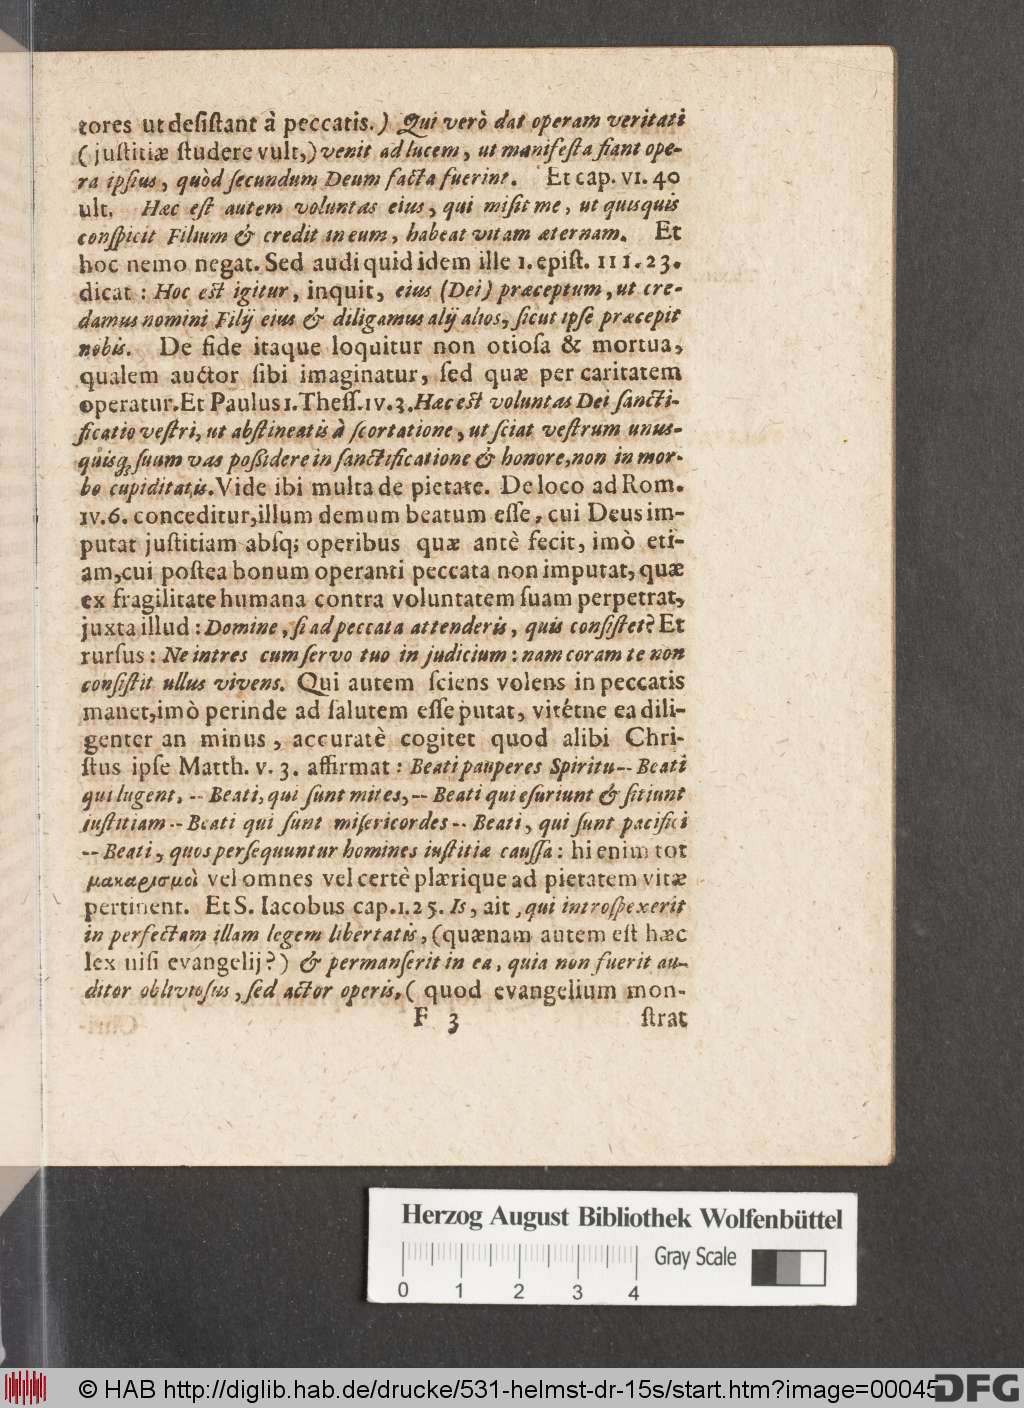 tores ut deſiſtant à peccatis.) Qui verò dat operam veritati
(juſtitiæ ſtudere vult,) venit ad lucem, ut manifeſta fiant ope-
ra ipſius, quòd ſecundum Deum facta fuerint. Et cap. VI. 40
ult. Hæc eſt autem voluntas eius, qui miſit me, ut quisquis
conſpicit Filium & credit in eum, habeat vitam æternam. Et
hoc nemo negat. Sed audi quid idem ille 1. epiſt. III. 23.
dicat: Hoc eſt igitur, inquit, eius (Dei) præceptum, ut cre-
damus nomini Filij eius & diligamus alij alios, ſicut ipſe præcepit
nobis. De fide itaque loquitur non otioſa & mortua,
qualem auctor ſibi imaginatur, ſed quæ per caritatem
operatur. Et Paulus 1. Theſſ. IV. 3. Hæc eſt voluntas Dei ſancti-
ficatio veſtri, ut abſtineatis à ſcortatione, ut ſciat veſtrum unus-
quisq; ſuum vas poſſidere in ſanctificatione & honore, non in mor-
bo cupiditatis. Vide ibi multa de pietate. De loco ad Rom.
IV. 6. conceditur, illum demum beatum eſſe, cui Deus im-
putat juſtitiam abſq; operibus quæ antè fecit, imò eti-
am, cui poſtea bonum operanti peccata non imputat, quæ
ex fragilitate humana contra voluntatem ſuam perpetrat,
juxta illud: Domine, ſi ad peccata attenderis, quis conſiſtet? Et
rurſus: Ne intres cum ſervo tuo in judicium: nam coram te non
conſiſtit ullus vivens. Qui autem ſciens volens in peccatis
manet, imò perinde ad ſalutem eſſe putat, vitétne ea dili-
genter an minus, accuratè cogitet quod alibi Chri-
ſtus ipſe Matth. V. 3. affirmat: Beati pauperes Spiritu-- Beati
qui lugent, -- Beati, qui ſunt mites, -- Beati qui eſuriunt & ſitiunt
iuſtitiam -- Beati qui ſunt miſericordes -- Beati, qui ſunt pacifici
-- Beati, quos perſequuntur homines iuſtitiæ cauſſa: hi enim tot
μακαρισμοὶ vel omnes vel certè plærique ad pietatem vitæ
pertinent. Et S. Iacobus cap. 1. 25. Is, ait, qui introſpexerit
in perfectam illam legem libertatis, (quænam autem eſt hæc
lex niſi evangelij?) & permanſerit in ea, quia non fuerit au-
ditor oblivioſus, ſed actor operis, (quod evangelium mon-
F 3 ſtrat
Herzog August Bibliothek Wolfenbüttel
Gray Scale
0 1 2 3 4
© HAB http://diglib.hab.de/drucke/531-helmst-dr-15s/start.htm?image=00045
DFG